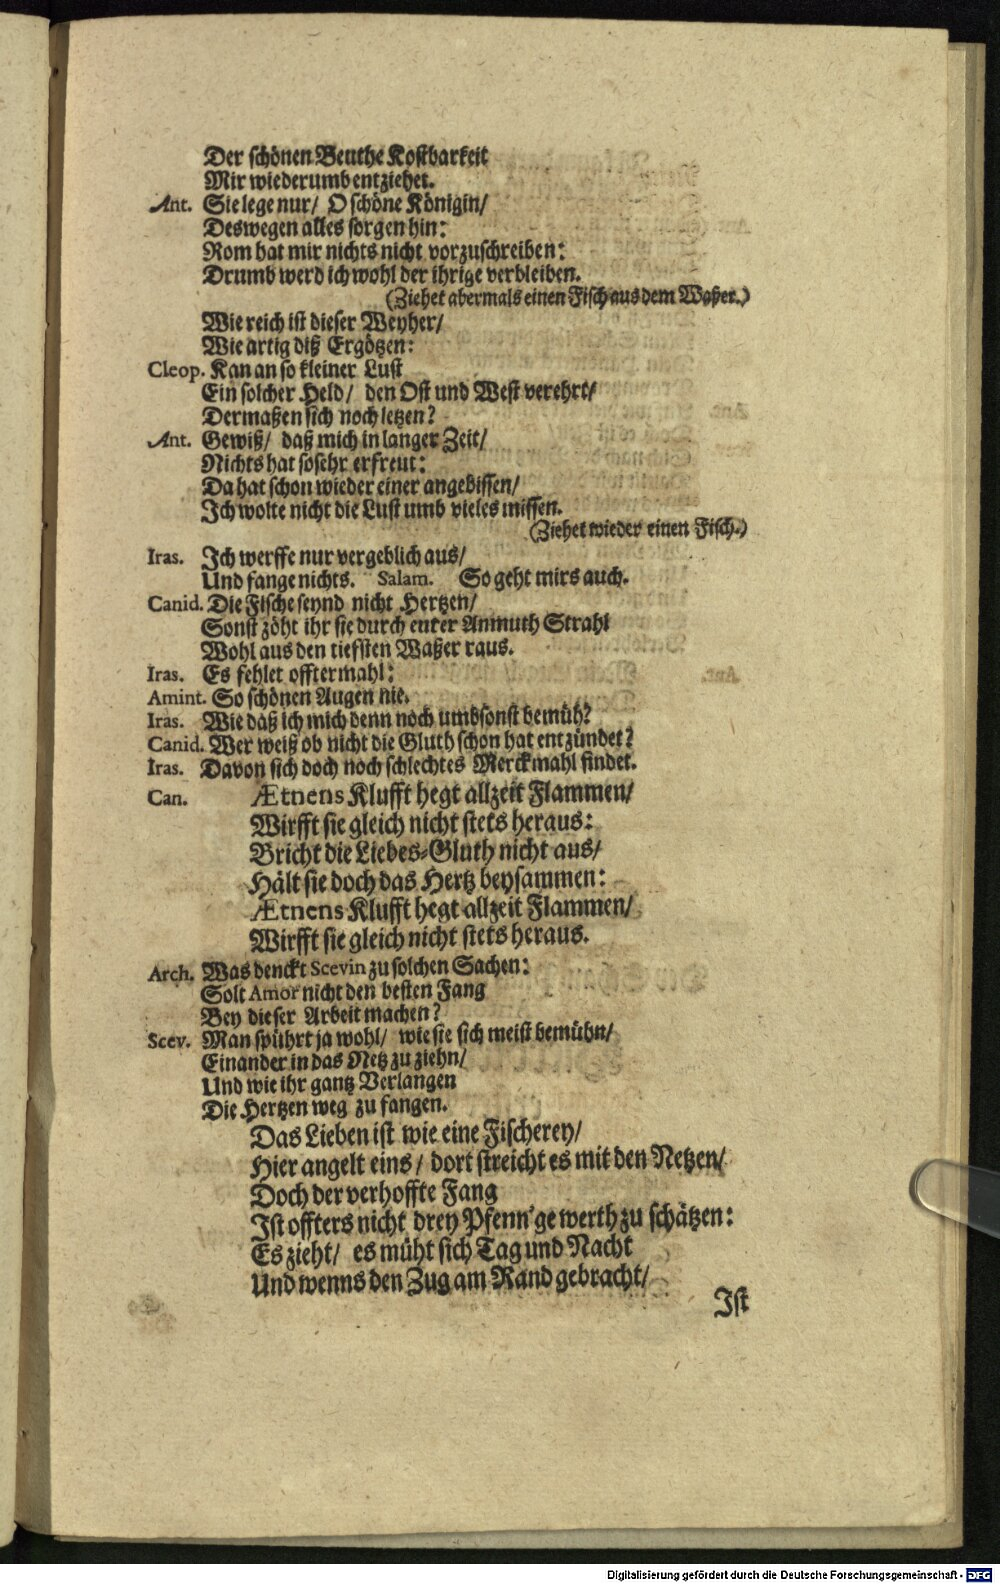 Der schönen Beuthe Kostbarkeit
Mir wiederumb entziehet.
Ant. Sie lege nur/ O schöne Königin/
Deswegen alles sorgen hin:
Rom hat mir nichts nicht vorzuschreiben:
Drumb werd ich wohl der ihrige verbleiben.
(Ziehet abermals einen Fisch aus dem Waßer.)
Wie reich ist dieser Weyher/
Wie artig diß Ergötzen:
Cleop. Kan an so kleiner Lust
Ein solcher Held/ den Ost und West verehrt/
Dermaßen sich noch letzen?
Ant. Gewiß/ daß mich in langer Zeit/
Nichts hat so sehr erfreut:
Da hat schon wieder einer angebissen/
Ich wolte nicht die Lust umb vieles missen.
(Ziehet wieder einen Fisch.)
Iras. Ich werffe nur vergeblich aus/
Und fange nichts. Salam. So geht mirs auch.
Canid. Die Fische seynd nicht Hertzen/
Sonst zöht ihr sie durch eurer Anmuth Strahl
Wohl aus den tiefsten Waßer raus.
Iras. Es fehlet offtermahl:
Amint. So schönen Augen nie.
Iras. Wie daß ich mich denn noch umbsonst bemüh?
Canid. Wer weiß ob nicht die Gluth schon hat entzündet?
Iras. Davon sich doch noch schlechtes Merckmahl findet.
Can. Ætnens Klufft hegt allzeit Flammen/
Wirfft sie gleich nicht stets heraus:
Bricht die Liebes-Gluth nicht aus/
Hält sie doch das Hertz beysammen:
Ætnens Klufft hegt allzeit Flammen/
Wirfft sie gleich nicht stets heraus.
Arch. Was denckt Scevin zu solchen Sachen:
Solt Amor nicht den besten Fang
Bey dieser Arbeit machen?
Scev. Man spührt ja wohl/ wie sie sich meist bemühn/
Einander in das Netz zu ziehn/
Und wie ihr gantz Verlangen
Die Hertzen weg zu fangen.
Das Lieben ist wie eine Fischerey/
Hier angelt eins/ dort streicht es mit den Netzen/
Doch der verhoffte Fang
Ist offters nicht drey Pfenn'ge werth zu schätzen:
Es zieht/ es müht sich Tag und Nacht
Und wenns den Zug am Rand gebracht/
Ist
Digitalisierung gefördert durch die Deutsche Forschungsgemeinschaft - DFG